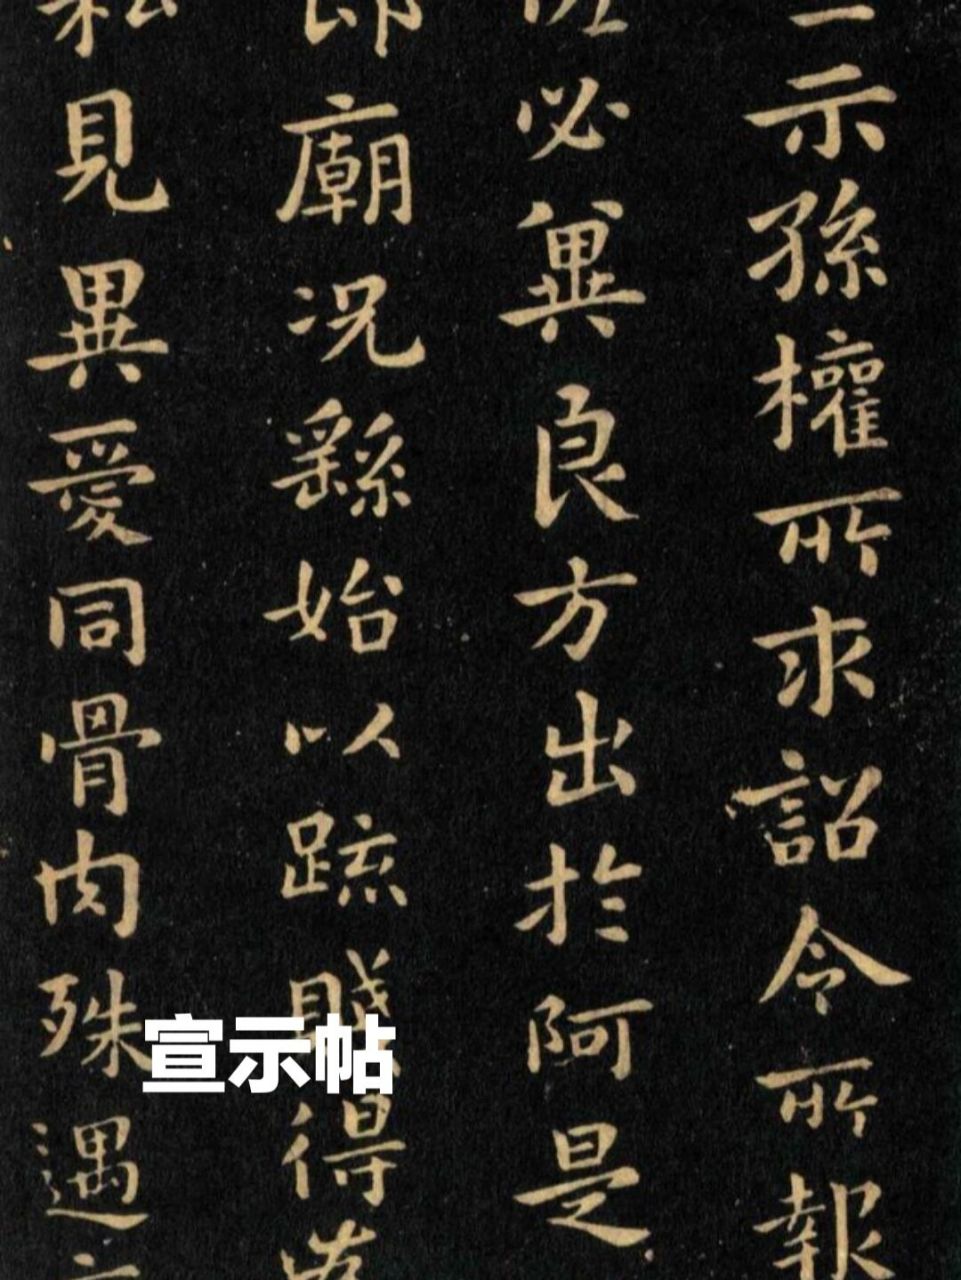 示孫權所求詔令所報
必冀良方出於阿是
郎廟況繇始以疏賤得
私見異愛同骨肉殊遇
宣示帖